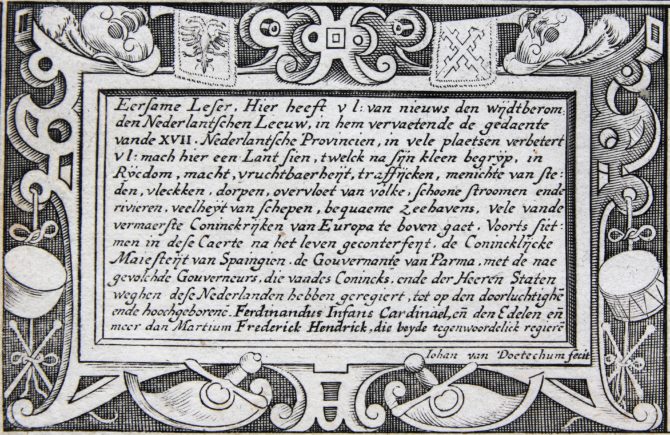 Eersame Leser, Hier heeft v l: van nieuws den wijdtberom:
den Nederlantschen Leeuw, in hem vervaetende de gedaente
vande XVII. Nederlantsche Provincien, in vele plaetsen verbetert
v l: mach hier een Lant sien, twelck na sijn kleen begrijp, in
Rijcdom, macht, vruchtbaerheijt, traffijcken, menichte van ste:
den, vleckken, dorpen, overvloet van volke, schoone stroomen ende
rivieren, veelheijt van schepen, bequaeme Zeehavens, vele vande
vermaerste Coninckrijken van Europa te boven gaet. Voorts siet:
men in dese Caerte na het leven geconterfeyt, de Conincklijcke
Maiesteijt van Spaingien, de Gouvernante van Parma, met de nae
gevolchde Gouverneurs, die vaades Conincks, ende der Heeren Staten
weghen dese Nederlanden hebben geregiert, tot op den doorluchtighē
ende hoochgeborenē. Ferdinandus Infans Cardinael, eñ den Edelen eñ
meer dan Martium Frederick Hendrick, die beyde tegenwoordelick regierē
Iohan van Doetechum fecit